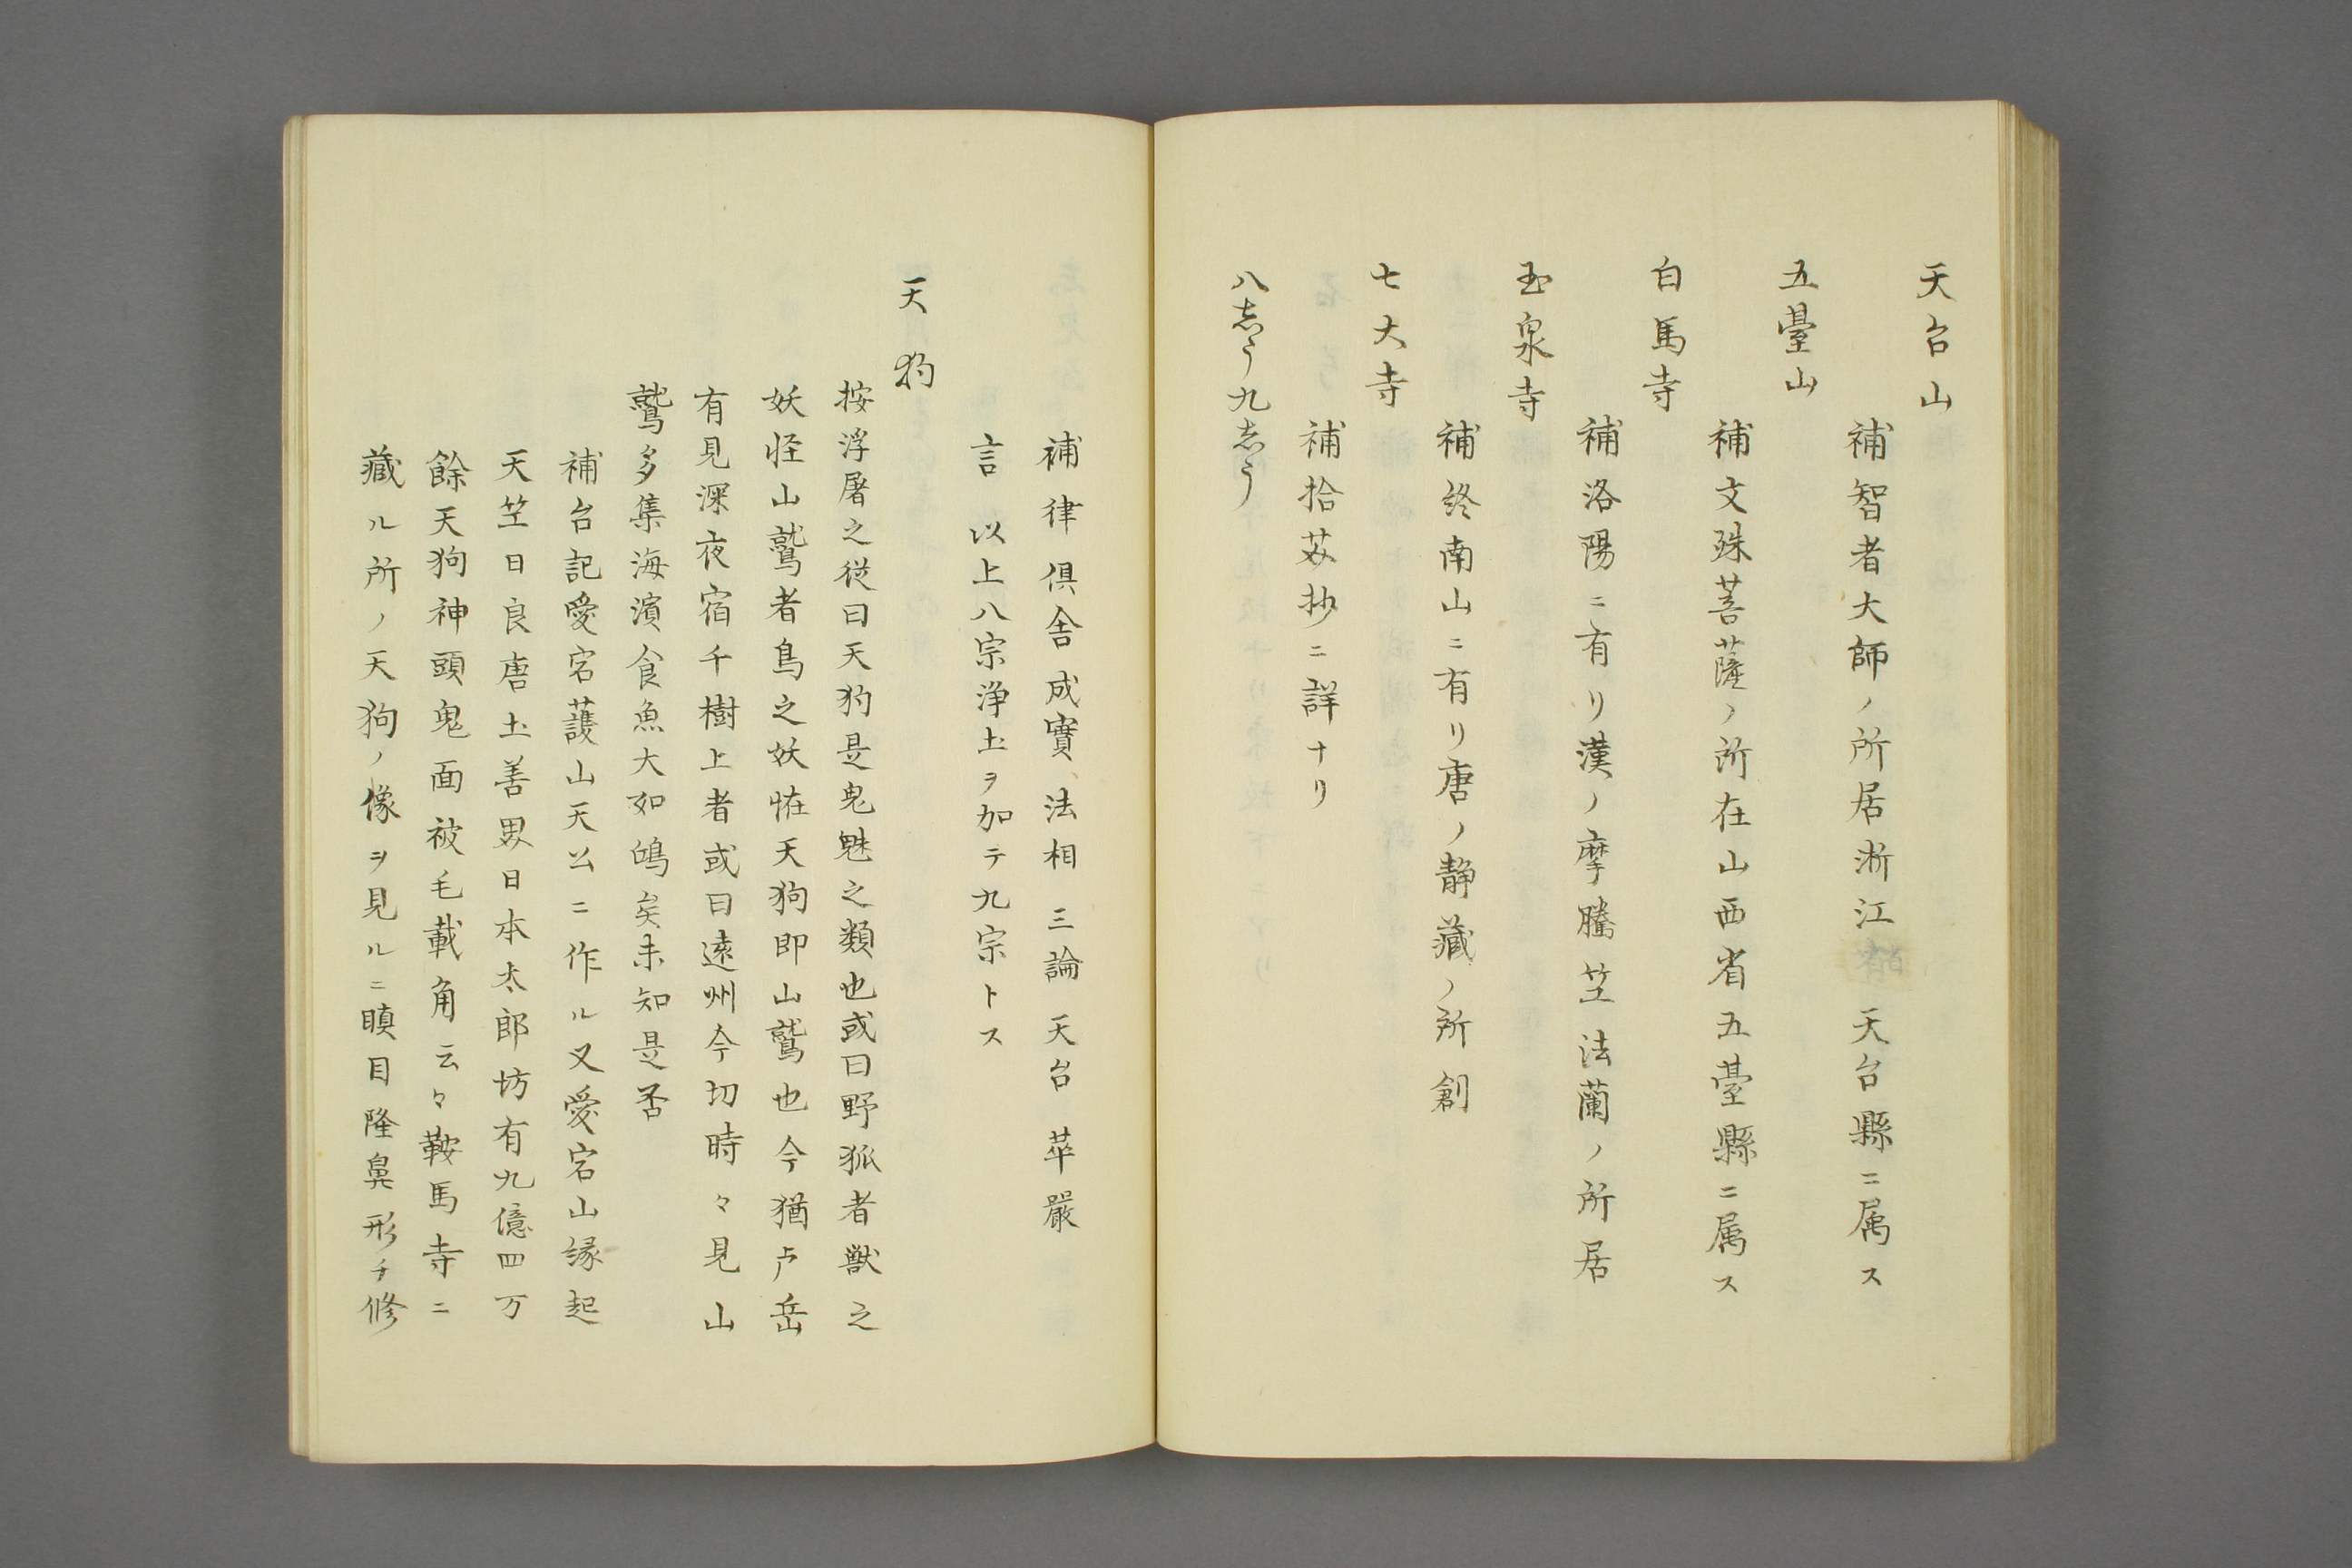 天台山
補智者大師ノ所居淅江省天台縣ニ属ス
五臺山
補文殊菩薩ノ所在山西省五臺縣ニ属ス
白馬寺
補洛陽ニ有リ漢ノ摩騰竺法蘭ノ所居
玉泉寺
補終南山ニ有リ唐ノ静藏ノ所創
七大寺
補拾芥抄ニ詳ナリ
八志う九志う
補律倶舎成實法相三論天台華嚴
言以上八宗浄土ヲ加テ九宗トス
天狗
按浮屠之従曰天狗是鬼魅之類也或曰野狐者獣之
妖怪山鷲者鳥之妖恠天狗即山鷲也今猶戸岳
有見深夜宿千樹上者或曰遠州今切時々見山
鷲多集海濱食魚大如鴻矣未知是否
補台記愛宕護山天公ニ作ル又愛宕山縁起
天竺日良唐土善界日本太郎坊有九億四万
餘天狗神頭鬼面被毛載角云々鞍馬寺ニ
藏ル所ノ天狗ノ像ヲ見ルニ瞋目隆鼻形チ修